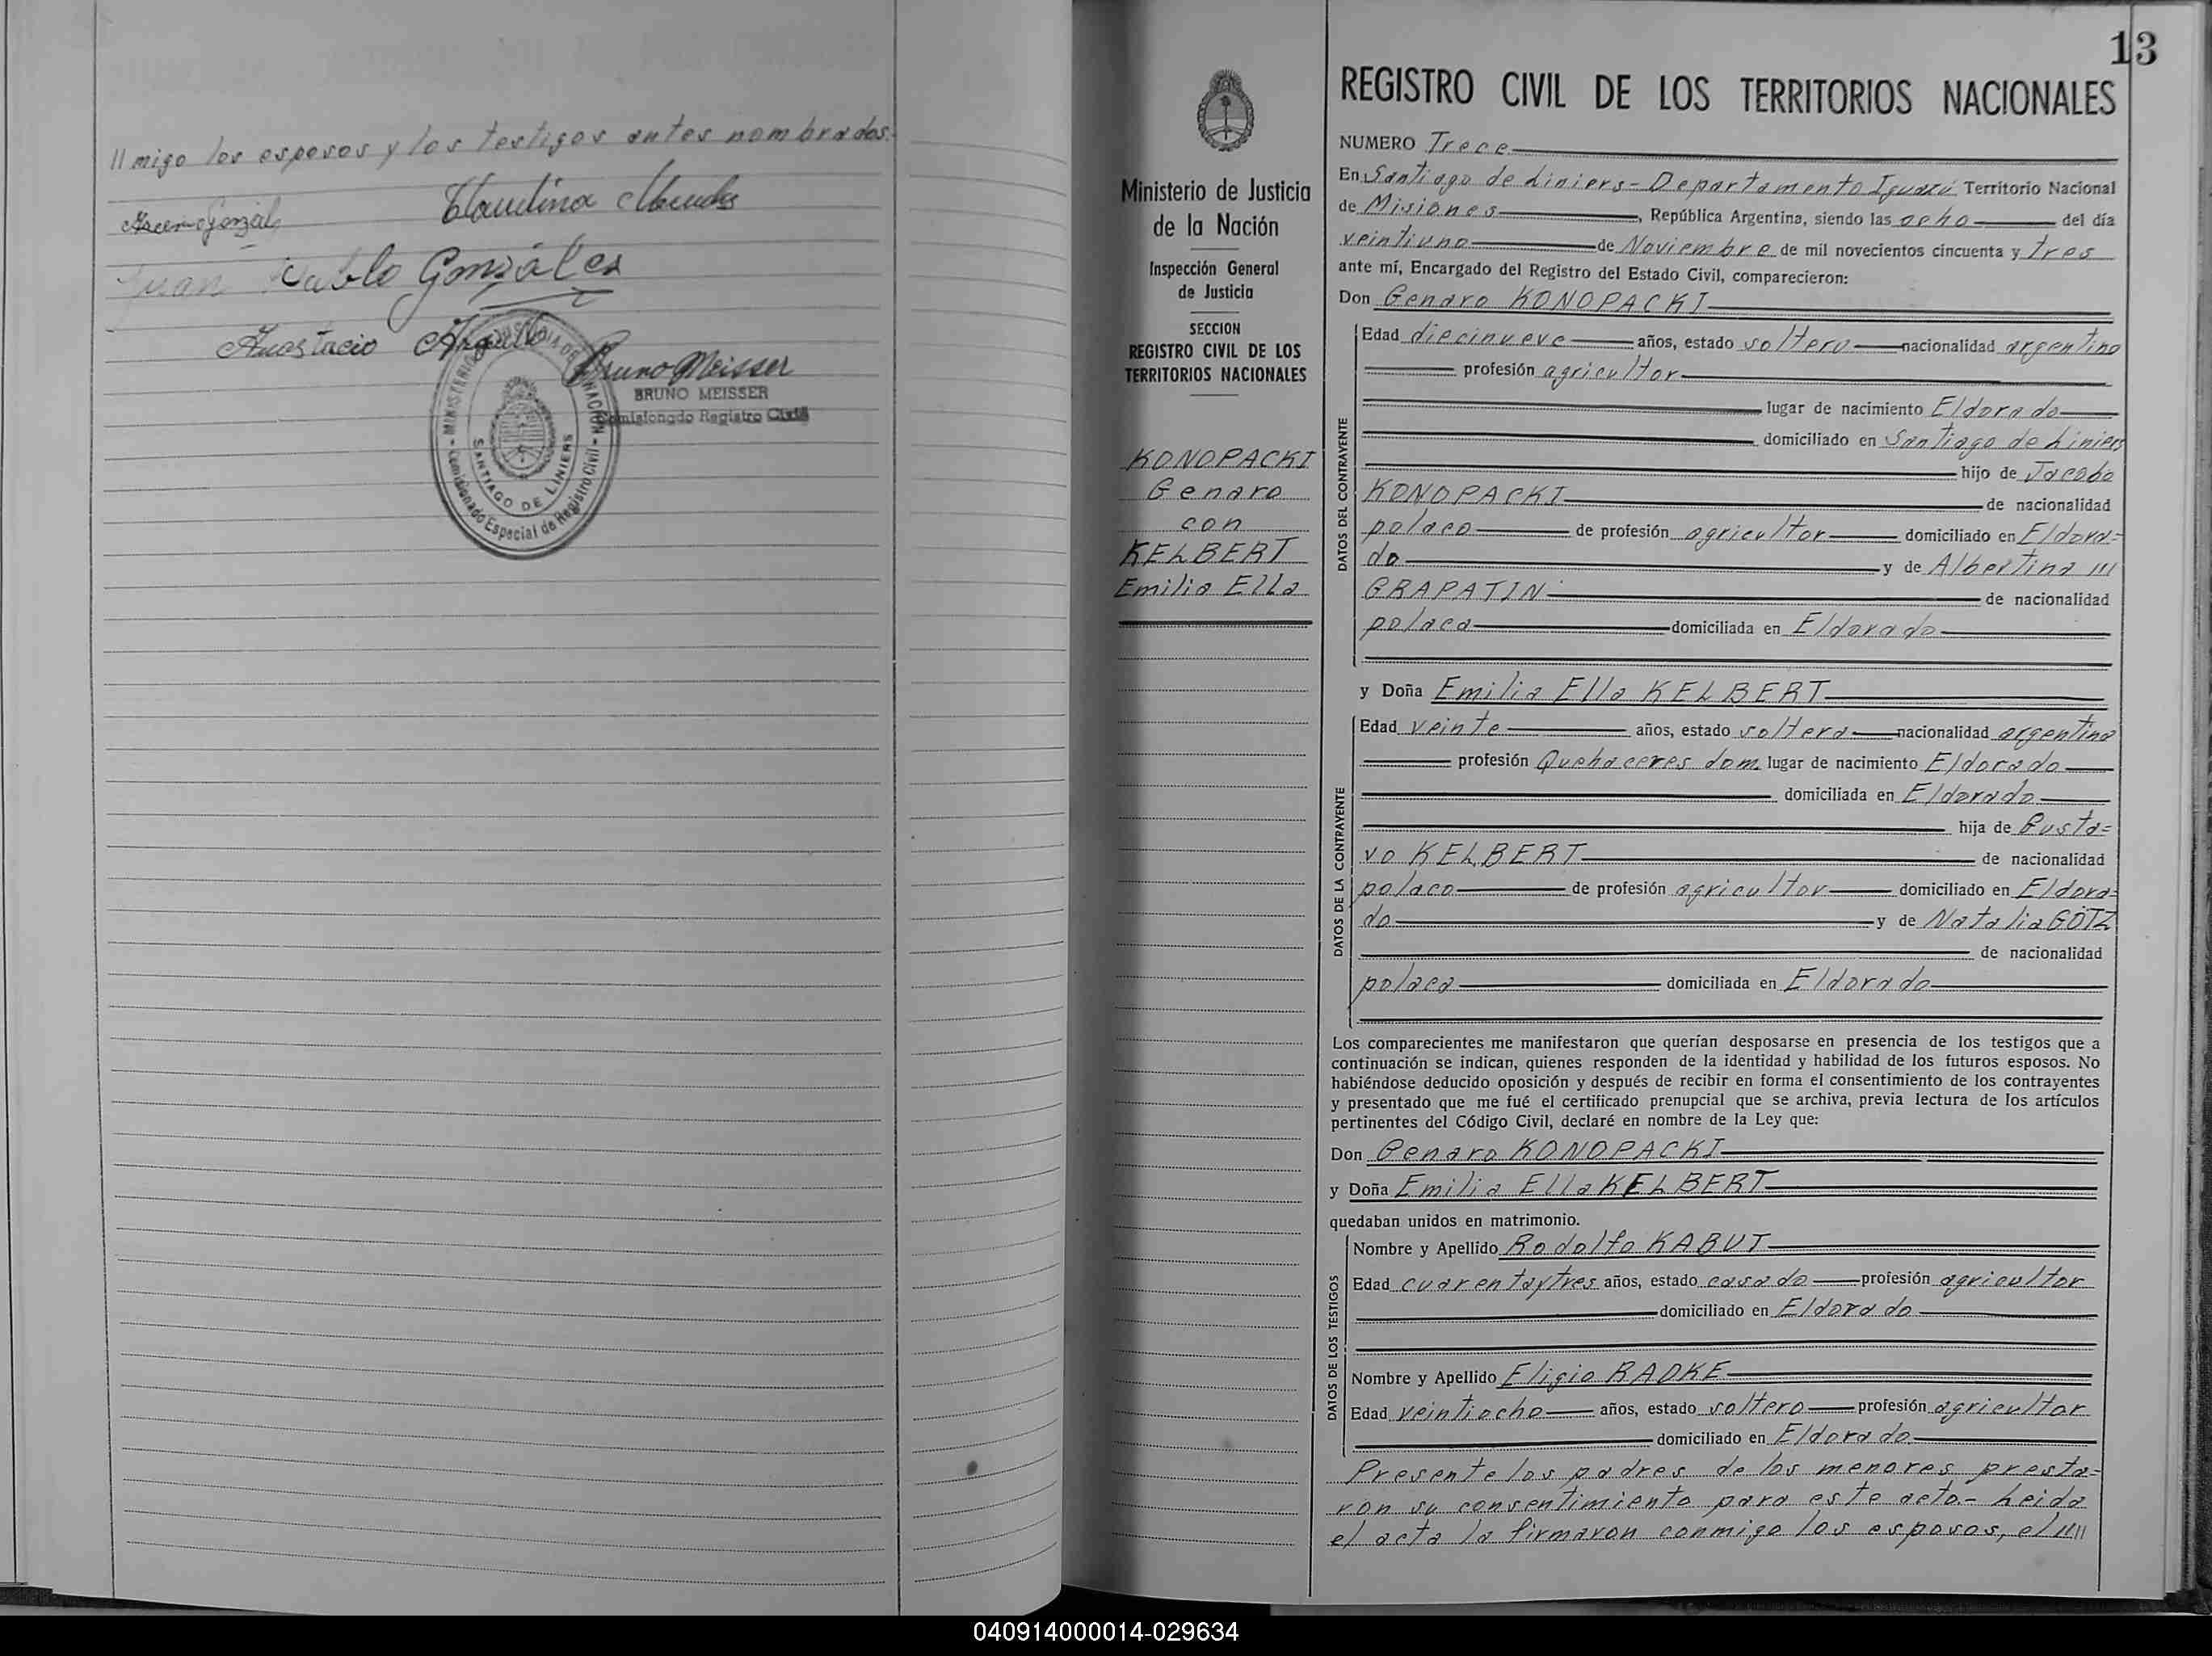 //migo los esposos y los testigos antes nombrados.
Claudina
Juan Pablo González
Anastacio
Bruno Meisser
BRUNO MEISSER
Comisionado Registro Civil
MINISTERIO DE JUSTICIA DE LA NACION
SANTIGO DE LINIERS
Comisionado Especial de Registro Civil
Ministerio de Justicia
de la Nación
Inspección General
de Justicia
SECCION
REGISTRO CIVIL DE LOS
TERRITORIOS NACIONALES
KONOPACKI
Genaro
con
KELBERT
Emilia Ella
13
REGISTRO CIVIL DE LOS TERRITORIOS NACIONALES
NUMERO Trece
En Santiago de Liniers - Departamento Iguazú Territorio Nacional
de Misiones, República Argentina, siendo las ocho del día
veintiuno de Noviembre de mil novecientos cincuenta y tres
ante mí, Encargado del Registro del Estado Civil, comparecieron:
Don Genaro KONOPACKI
DATOS DEL CONTRAYENTE
Edad diecinueve años, estado soltero nacionalidad argentino
profesión agricultor
lugar de nacimiento Eldorado
domiciliado en Santiago de Liniers
hijo de Jacobo
KONOPACKI de nacionalidad
polaco de profesión agricultor domiciliado en Eldora=
do y de Albertina ///
GRAPATIN de nacionalidad
polaca domiciliada en Eldorado
y Doña Emilia Ella KELBERT
DATOS DE LA CONTRAYENTE
Edad veinte años, estado soltera nacionalidad argentina
profesión Quehaceres dom. lugar de nacimiento Eldorado
domiciliada en Eldorado
hija de Gusta=
vo KELBERT de nacionalidad
polaco de profesión agricultor domiciliado en Eldora=
do y de Natalia GÖTZ
de nacionalidad
polaca domiciliada en Eldorado
Los comparecientes me manifestaron que querían desposarse en presencia de los testigos que a
continuación se indican, quienes responden de la identidad y habilidad de los futuros esposos. No
habiéndose deducido oposición y después de recibir en forma el consentimiento de los contrayentes
y presentado que me fué el certificado prenupcial que se archiva, previa lectura de los artículos
pertinentes del Código Civil, declaré en nombre de la Ley que:
Don Genaro KONOPACKI
y Doña Emilia Ella KELBERT
quedaban unidos en matrimonio.
DATOS DE LOS TESTIGOS
Nombre y Apellido Rodolfo KABUT
Edad cuarentaytres años, estado casado profesión agricultor
domiciliado en Eldorado
Nombre y Apellido Eligio RADKE
Edad veintiocho años, estado soltero profesión agricultor
domiciliado en Eldorado.
Presente los padres de los menores presta=
ron su consentimiento para este acto.- Leida
el acta la firmaron conmigo los esposos, el ////
040914000014-029634